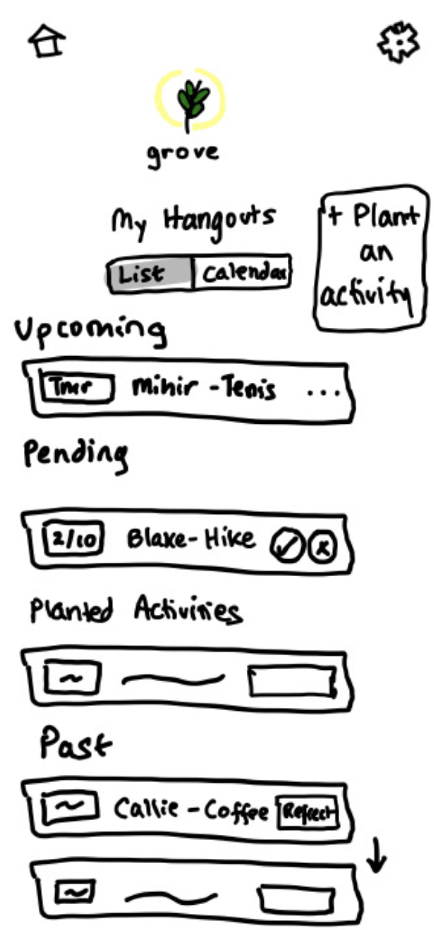 grove
My Hangouts
+ Plant
an
activity
List Calendar
Upcoming
Tmr Mihir - Tenis ...
Pending
2/10 Blake - Hike
Planted Activities
Past
Callie - Coffee Reflect